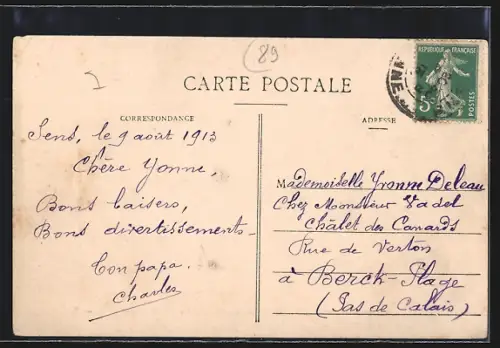 89
CARTE POSTALE
RÉPUBLIQUE FRANÇAISE
5c
POSTES
CORRESPONDANCE
ADRESSE
Sens, le 9 août 1913
Chère Yonne,
Bons baisers,
Bons divertissements
Ton papa.
Charles
Mademoiselle Yvonne Deleau
Chez Monsieur Vadol
Châlet des Canards
Rue de Verton
à Berck-Plage
(Pas de Calais)